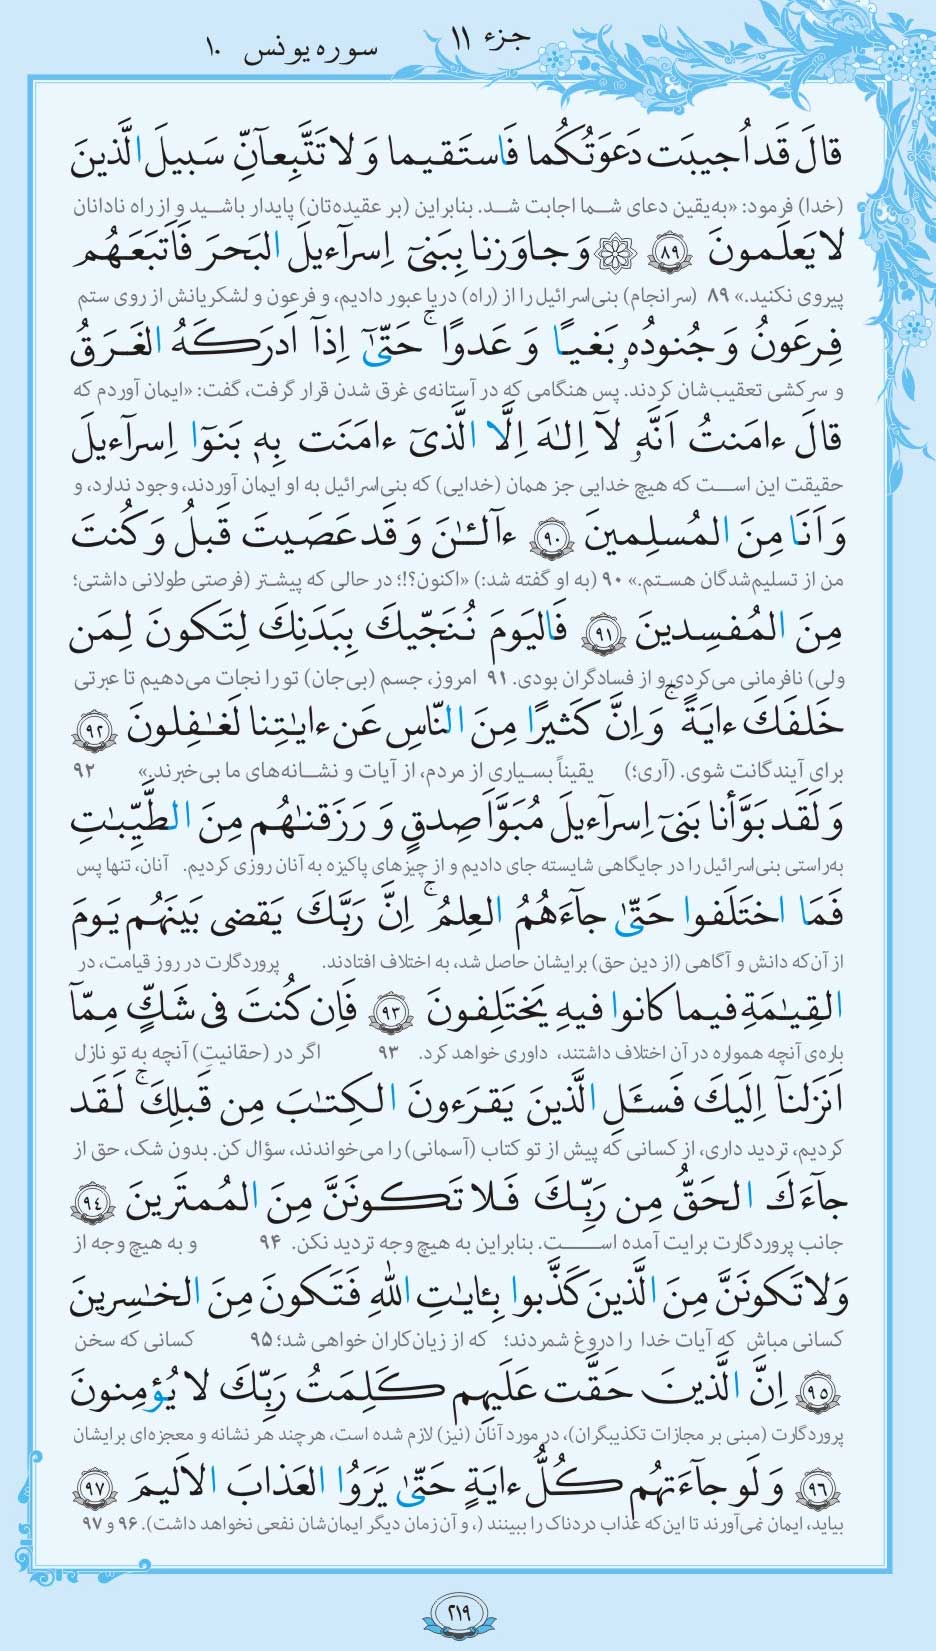 جزء ۱۱
سوره یونس ۱۰
قالَ قَد اُجیبَت دَعوَتُکُما فَاستَقیما وَ لا تَتَّبِعآنِّ سَبیلَ الَّذینَ
(خدا) فرمود: «به‌یقین دعای شـما اجابت شـد. بنابراین (بر عقیده‌تان) پایدار باشـید و از راه نادانان
لا یَعلَمونَ ﴿۸۹﴾ وَ جاوَزنا بِبَنیٓ اِسرآءیلَ البَحرَ فَاَتبَعَهُم
پیروی نکنید.» ۸۹ (سرانجام) بنی‌اسرائیل را از (راه) دریا عبور دادیم، و فرعون و لشکریانش از روی ستم
فِرعَونُ وَ جُنودُهٗ بَغیًا وَ عَدوًا ۚ حَتّیٰٓ اِذآ اَدرَکَهُ الغَرَقُ
و سرکشی تعقیب‌شان کردند. پس هنگامی که در آستانه‌ی غرق شدن قرار گرفت، گفت: «ایمان آوردم که
قالَ ءامَنتُ اَنَّهٗ لآ اِلـٰهَ اِلَّا الَّذیٓ ءامَنَت بِهٖ بَنوٓا اِسرآءیلَ
حقیقت این اسـت که هیچ خدایی جز همان (خدایی) که بنی‌اسرائیل به او ایمان آوردند، وجود ندارد، و
وَ اَنَا مِنَ المُسلِمینَ ﴿۹۰﴾ ءآلـٰنَ وَ قَد عَصَیتَ قَبلُ وَ کُنتَ
من از تسلیم‌شدگان هسـتم.» ۹۰ (به او گفته شد:) «اکنون؟!؛ در حالی که پیشـتر (فرصتی طولانی داشتی؛
مِنَ المُفسِدینَ ﴿۹۱﴾ فَالیَومَ نُنَجّیکَ بِبَدَنِکَ لِتَکونَ لِمَن
ولی) نافرمانی می‌کردی و از فسادگران بودی. ۹۱ امروز، جسم (بی‌جان) تو را نجات می‌دهیم تا عبرتی
خَلفَکَ ءایَةً ۚ وَ اِنَّ کَثیرًا مِنَ النّاسِ عَن ءایٰتِنا لَغـٰفِلونَ ﴿۹۲﴾
برای آیندگانت شوی. (آری؛) یقیناً بسـیاری از مردم، از آیات و نشـانه‌های ما بی‌خبرند.» ۹۲
وَ لَقَد بَوَّأنا بَنیٓ اِسرآءیلَ مُبَوَّاَ صِدقٍ وَ رَزَقنٰهُم مِنَ الطَّیِّبٰتِ
به‌راستی بنی‌اسرائیل را در جایگاهی شایسته جای دادیم و از چیزهای پاکیزه به آنان روزی کردیم. آنان، تنها پس
فَمَا اختَلَفوا حَتّیٰ جآءَهُمُ العِلمُ ۚ اِنَّ رَبَّکَ یَقضی بَینَهُم یَومَ
از آن‌که دانش و آگاهی (از دین حق) برایشان حاصل شد، به اختلاف افتادند. پروردگارت در روز قیامت، در
القِیٰمَةِ فیما کانوا فیهِ یَختَلِفونَ ﴿۹۳﴾ فَاِن کُنتَ فی شَکٍّ مِمّآ
باره‌ی آنچه همواره در آن اختلاف داشتند، داوری خواهد کرد. ۹۳ اگر در (حقانیتِ) آنچه به تو نازل
اَنزَلنآ اِلَیکَ فَسـَٔلِ الَّذینَ یَقرَءونَ الکِتٰبَ مِن قَبلِکَ ۚ لَقَد
کردیم، تردید داری، از کسانی که پیش از تو کتاب (آسمانی) را می‌خواندند، سؤال کن. بدون شک، حق از
جآءَکَ الحَقُّ مِن رَبِّکَ فَلا تَکونَنَّ مِنَ المُمتَرینَ ﴿۹۴﴾
جانب پروردگارت برایت آمده اسـت. بنابراین به هیچ وجه تردید نکن. ۹۴ و به هیچ وجه از
وَلا تَکونَنَّ مِنَ الَّذینَ کَذَّبوا بِـٔایٰتِ اللهِ فَتَکونَ مِنَ الخٰسِرینَ
کسانی مباش که آیات خدا را دروغ شمردند؛ که از زیان‌کاران خواهی شد؛ ۹۵ کسانی که سخن
﴿۹۵﴾ اِنَّ الَّذینَ حَقَّت عَلَیهِم کَلِمَتُ رَبِّکَ لا یُؤمِنونَ
پروردگارت (مبنی بر مجازات تکذیبگران)، در مورد آنان (نیز) لازم شده است، هر چند هر نشانه و معجزه‌ای برایشان
﴿۹۶﴾ وَ لَو جآءَتهُم کُلُّ ءایَةٍ حَتّیٰ یَرَوُا العَذابَ الاَلیمَ ﴿۹۷﴾
بیاید، ایمان نمی‌آورند تا این‌که عذاب دردناک را ببینند (، و آن زمان دیگر ایمان‌شان نفعی نخواهد داشت). ۹۶ و ۹۷
۲۱۹